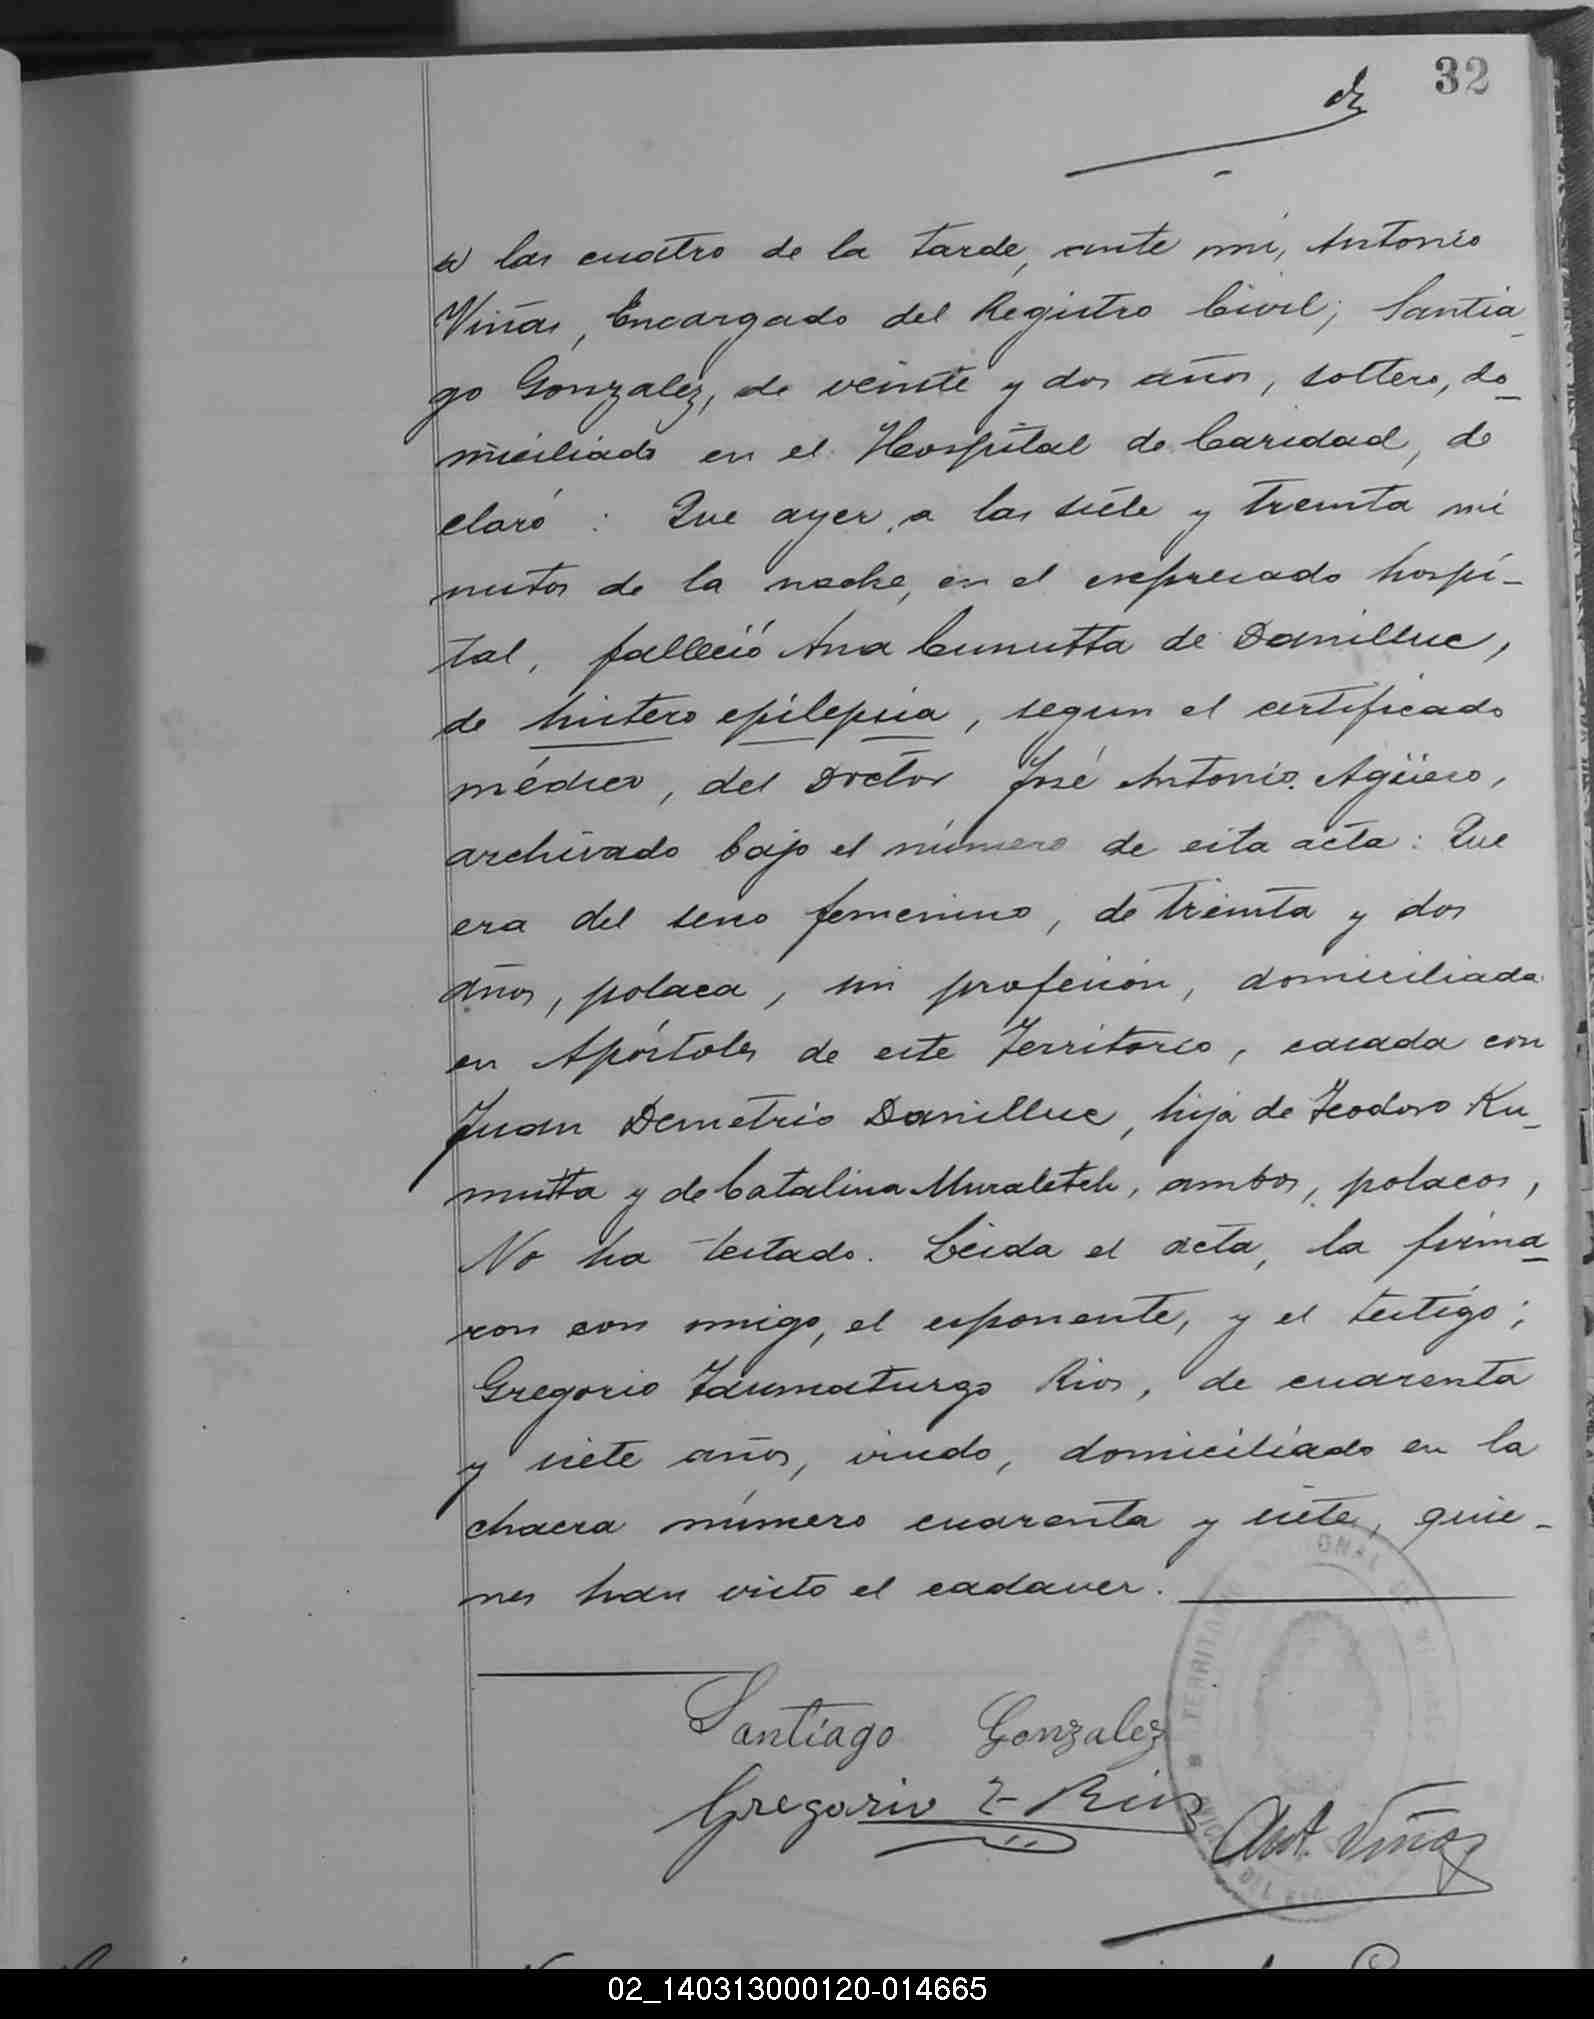 32
a las cuatro de la tarde, ante mi, Antonio
Viñas, Encargado del Registro Civil; Santia
go Gonzalez, de veinte y dos años, soltero, do-
miciliado en el Hospital de Caridad, de
claró : Que ayer, a las siete y treinta mi
nutos de la noche, en el expresado hospi-
tal, falleció Ana Cunutta de Danilluc,
de histero epilepsia, segun el certificado
médico, del Doctor José Antonio Agüero,
archivado bajo el número de esta acta: Que
era del sexo femenino, de treinta y dos
años, polaca, sin profesión, domiciliada
en Apóstoles de este Territorio, casada con
Juan Demetrio Danilluc, hija de Teodoro Ku-
mutta y de Catalina Muraletch, ambos, polacos,
No ha testado. Leida el acta, la firma-
ron con migo, el esponente, y el testigo;
Gregorio Taumaturgo Rios, de cuarenta
y siete años, viudo, domiciliado en la
chacra número cuarenta y siete, quie-
nes han visto el cadaver.
Santiago Gonzalez
Gregorio T Rios
Ant. Viñas
02_140313000120-014665